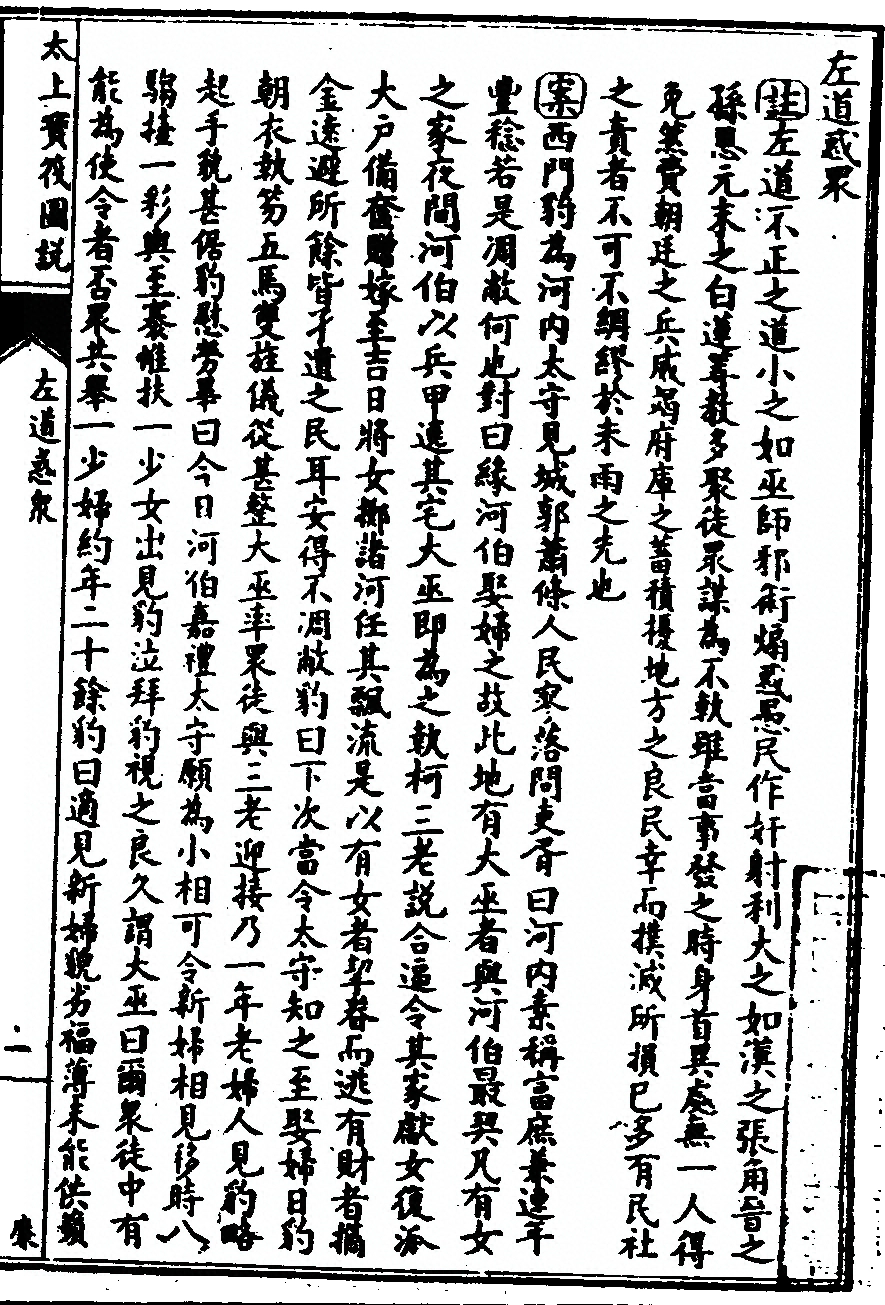 左道惑眾
註左道不正之道小之如巫師邪術煽惑愚民作奸射利大之如漢之張角晉之
孫恩元末之白蓮等教多聚徒眾謀為不軌雖當事發之時身首異處無一人得
免然費朝廷之兵威竭府庫之蓄積擾地方之良民幸而撲滅所損已多有民社
之責者不可不綢繆於未雨之先也
案西門豹為河內太守見城郭蕭條人民寥落問吏胥曰河內素稱富庶兼連年
豐稔若是凋敝何也對曰緣河伯娶婦之故此地有大巫者與河伯最契凡有女
之家夜間河伯以兵甲遶其宅大巫即為之執柯三老說合逼令其家獻女復派
大戶備奩贈嫁至吉日將女擲諸河任其飄流是以有女者挈眷而逃有財者攜
金遠避所餘皆孑遺之民耳安得不凋敝豹曰下次當令太守知之至娶婦日豹
朝衣執笏五馬雙旌儀從甚整大巫率眾徒與三老迎接乃一年老婦人見豹略
起手貌甚倨豹慰勞畢曰今日河伯嘉禮太守願為小相可令新婦相見移時八
騶擡一彩輿至褰帷扶一少女出見豹泣拜豹視之良久謂大巫曰爾眾徒中有
能為使令者否眾共舉一少婦約年二十餘豹曰適見新婦貌劣福薄未能供蘋
太上寶筏圖說
左道惑眾
二
廉